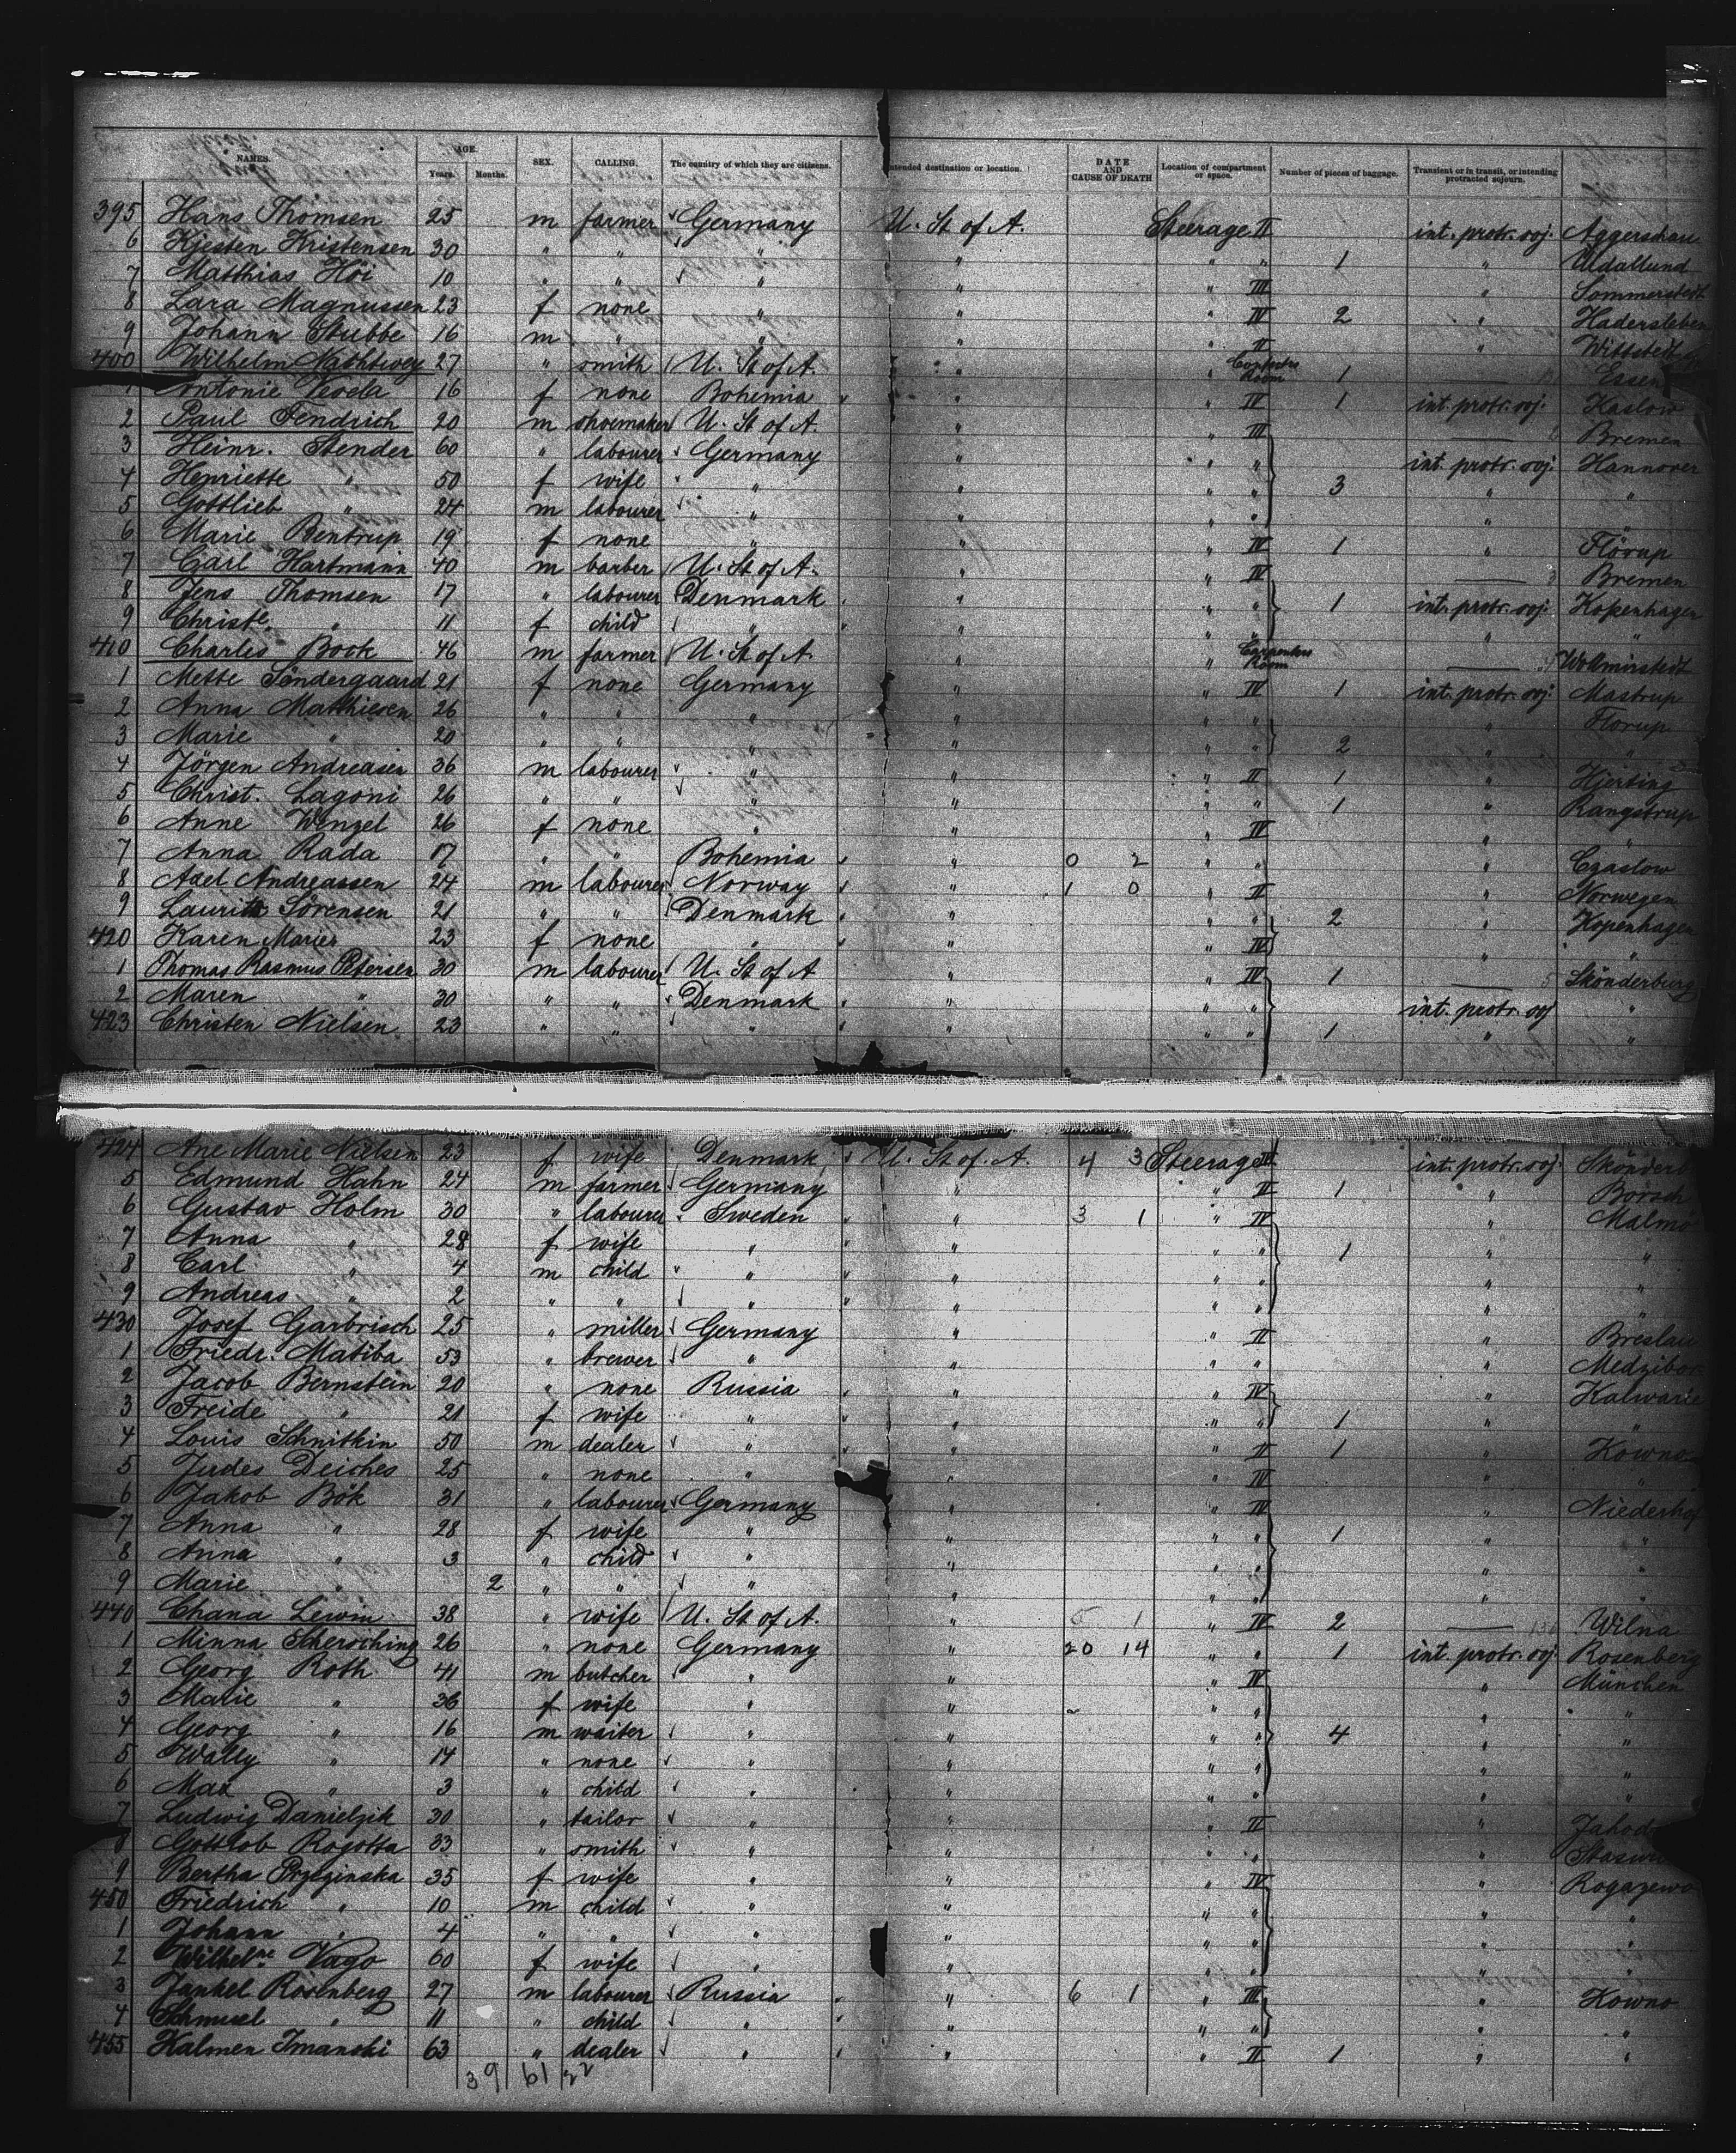 NAMES. AGE. Years. Months. SEX. CALLING. The country of which they are citizens. Intended destination or location. DATE AND CAUSE OF DEATH Location of compartment or space. Number of pieces of baggage. Transient or in transit, or intending protracted sojourn.
395 Hans Thomsen 25 m farmer Germany U. St of A. Steerage II int. protr. soj. Aggerschau
6 Kjesten Kristensen 30 " " " " " " 1 " Udallund
7 Matthias Höi 10 " " " " " III " Sommerstedt
8 Lara Magnussen 23 f none " " " IV 2 " Hadersleben
9 Johann Stubbe 16 m " " " " II " Wittstedt
400 Wilhelm Nachtweg 27 " smith U. St of A. " Carpenters Room 1 — Essen
1 Antonie Veoda 16 f none Bohemia " " IV 1 int. protr. soj. Kaslow
2 Paul Fendrich 20 m shoemaker U. St of A. " " III — Bremen
3 Heinr. Stender 60 " labourer Germany " " " int. protr. soj. Hannover
4 Henriette " 50 f wife " " " " 3 " "
5 Gottlieb " 24 m labourer " " " " "
6 Marie Bentrup 19 f none " " " IV 1 " Flörup
7 Carl Hartmann 40 m barber U. St of A. " " IV — 3 Bremen
8 Jens Thomsen 17 " labourer Denmark " " " 1 int. protr. soj. Kopenhagen
9 Christe. " 11 f child " " " " " "
410 Charles Bock 46 m farmer U. St of A. " " Carpenters Room — Wollmirstedt
1 Mette Söndergaard 21 f none Germany " " IV 1 int. protr. soj. Mastrup
2 Anna Matthiesen 26 " " " " " Florup
3 Marie " 20 " " " " " " 2 "
4 Jörgen Andreasen 36 m labourer " " " II 1 " Hjerting
5 Christ. Lagoni 26 " " " " " " 1 " Rangstrup
6 Anne Wenzel 26 f none " " " IV " "
7 Anna Rada 17 " " Bohemia " 0 2 " " " Czaslow
8 Axel Andreassen 24 m labourer Norway " 1 0 " II " Norwegen
9 Laurits Sörensen 21 " " Denmark " " " 2 " Kopenhagen
420 Karen Marier 23 f none " " " IV " "
1 Thomas Rasmus Petersen 30 m labourer U. St of A " " IV 1 — 5 Skönderburg
2 Maren " 30 " " Denmark " " " int. protr. soj "
423 Christen Nielsen 23 " " " " " " 1 " "
424 Ane Marie Nielsen 23 f wife Denmark U. St of. A. 4 3 Steerage IV int. protr. soj. Skönderb
5 Edmund Hahn 24 m farmer Germany " " II 1 " Borsch
6 Gustav Holm 30 " labourer Sweden " 3 1 " IV " Malmö
7 Anna " 28 f wife " " " " 1 " "
8 Carl " 4 m child " " " " " "
9 Andreas " 2 " " " " " " " "
430 Josef Garbrisch 25 " miller Germany " " II " Breslau
1 Friedr. Matiba 53 " brewer " " " " " Medzibor
2 Jacob Bernstein 20 " none Russia " " IV " Kalwarie
3 Freide " 21 f wife " " " " 1 " "
4 Louis Schnitkin 50 m dealer " " " II 1 " Kowno
5 Judes Deiches 25 " none " " " IV " "
6 Jakob Bök 31 " labourer Germany " " IV " Niederhof
7 Anna " 28 f wife " " " " 1 " "
8 Anna " 3 " child " " " " " "
9 Marie " 2 " " " " " " " "
440 Chana Lewin 38 " wife U. St of A. " 5 1 " IV 2 — Wilna
1 Minna Scherching 26 " none Germany " 20 14 " " 1 int. protr. soj. Rosenberg
2 Georg Roth 41 m butcher " " " IV " München
3 Marie " 36 f wife " " " " " "
4 Georg " 16 m waiter " " " " 4 " "
5 Wally " 14 " none " " " " " "
6 Max " 3 " child " " " " " "
7 Ludwig Danielzik 30 " tailor " " " II " Jahod
8 Gottlob Rogotta 33 " smith " " " " " Stasw
9 Bertha Przyginska 35 f wife " " " IV " Rogazewo
450 Friedrich " 10 m child " " " " " "
1 Johann " 4 " " " " " " " "
2 Wilhelne Vago 60 f wife " " " " " "
3 Jankel Rosenberg 27 m labourer Russia " 6 1 " III " Kowno
4 Schmuel " 11 " child " " " " " "
455 Kalmen Imanski 63 " dealer " " " II 1 " "
39 61 22